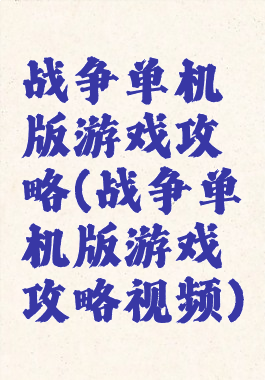 战争单机
版游戏攻
略(战争单
机版游戏
攻略视频)